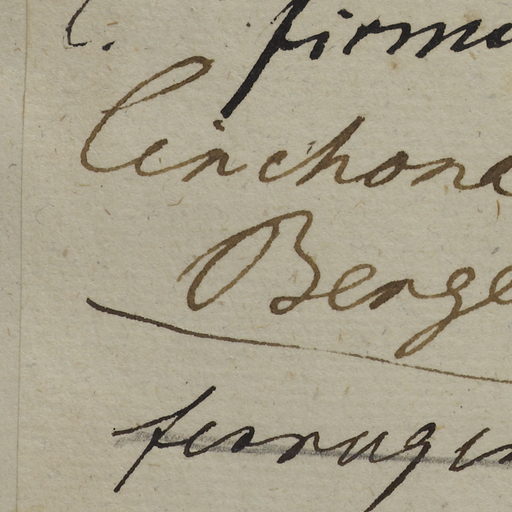 C. firma
Cinchona
Berge
ferrugin